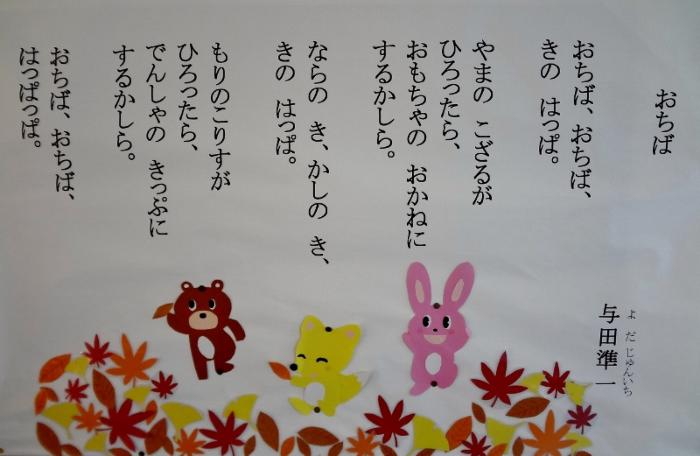 おちば
与田準一
よだじゅんいち
おちば、おちば、
きの はっぱ。
やまの こざるが
ひろったら、
おもちゃの おかねに
するかしら。
ならの き、かしの き、
きの はっぱ。
もりのこりすが
ひろったら、
でんしゃの きっぷに
するかしら。
おちば、おちば、
はっぱっぱ。